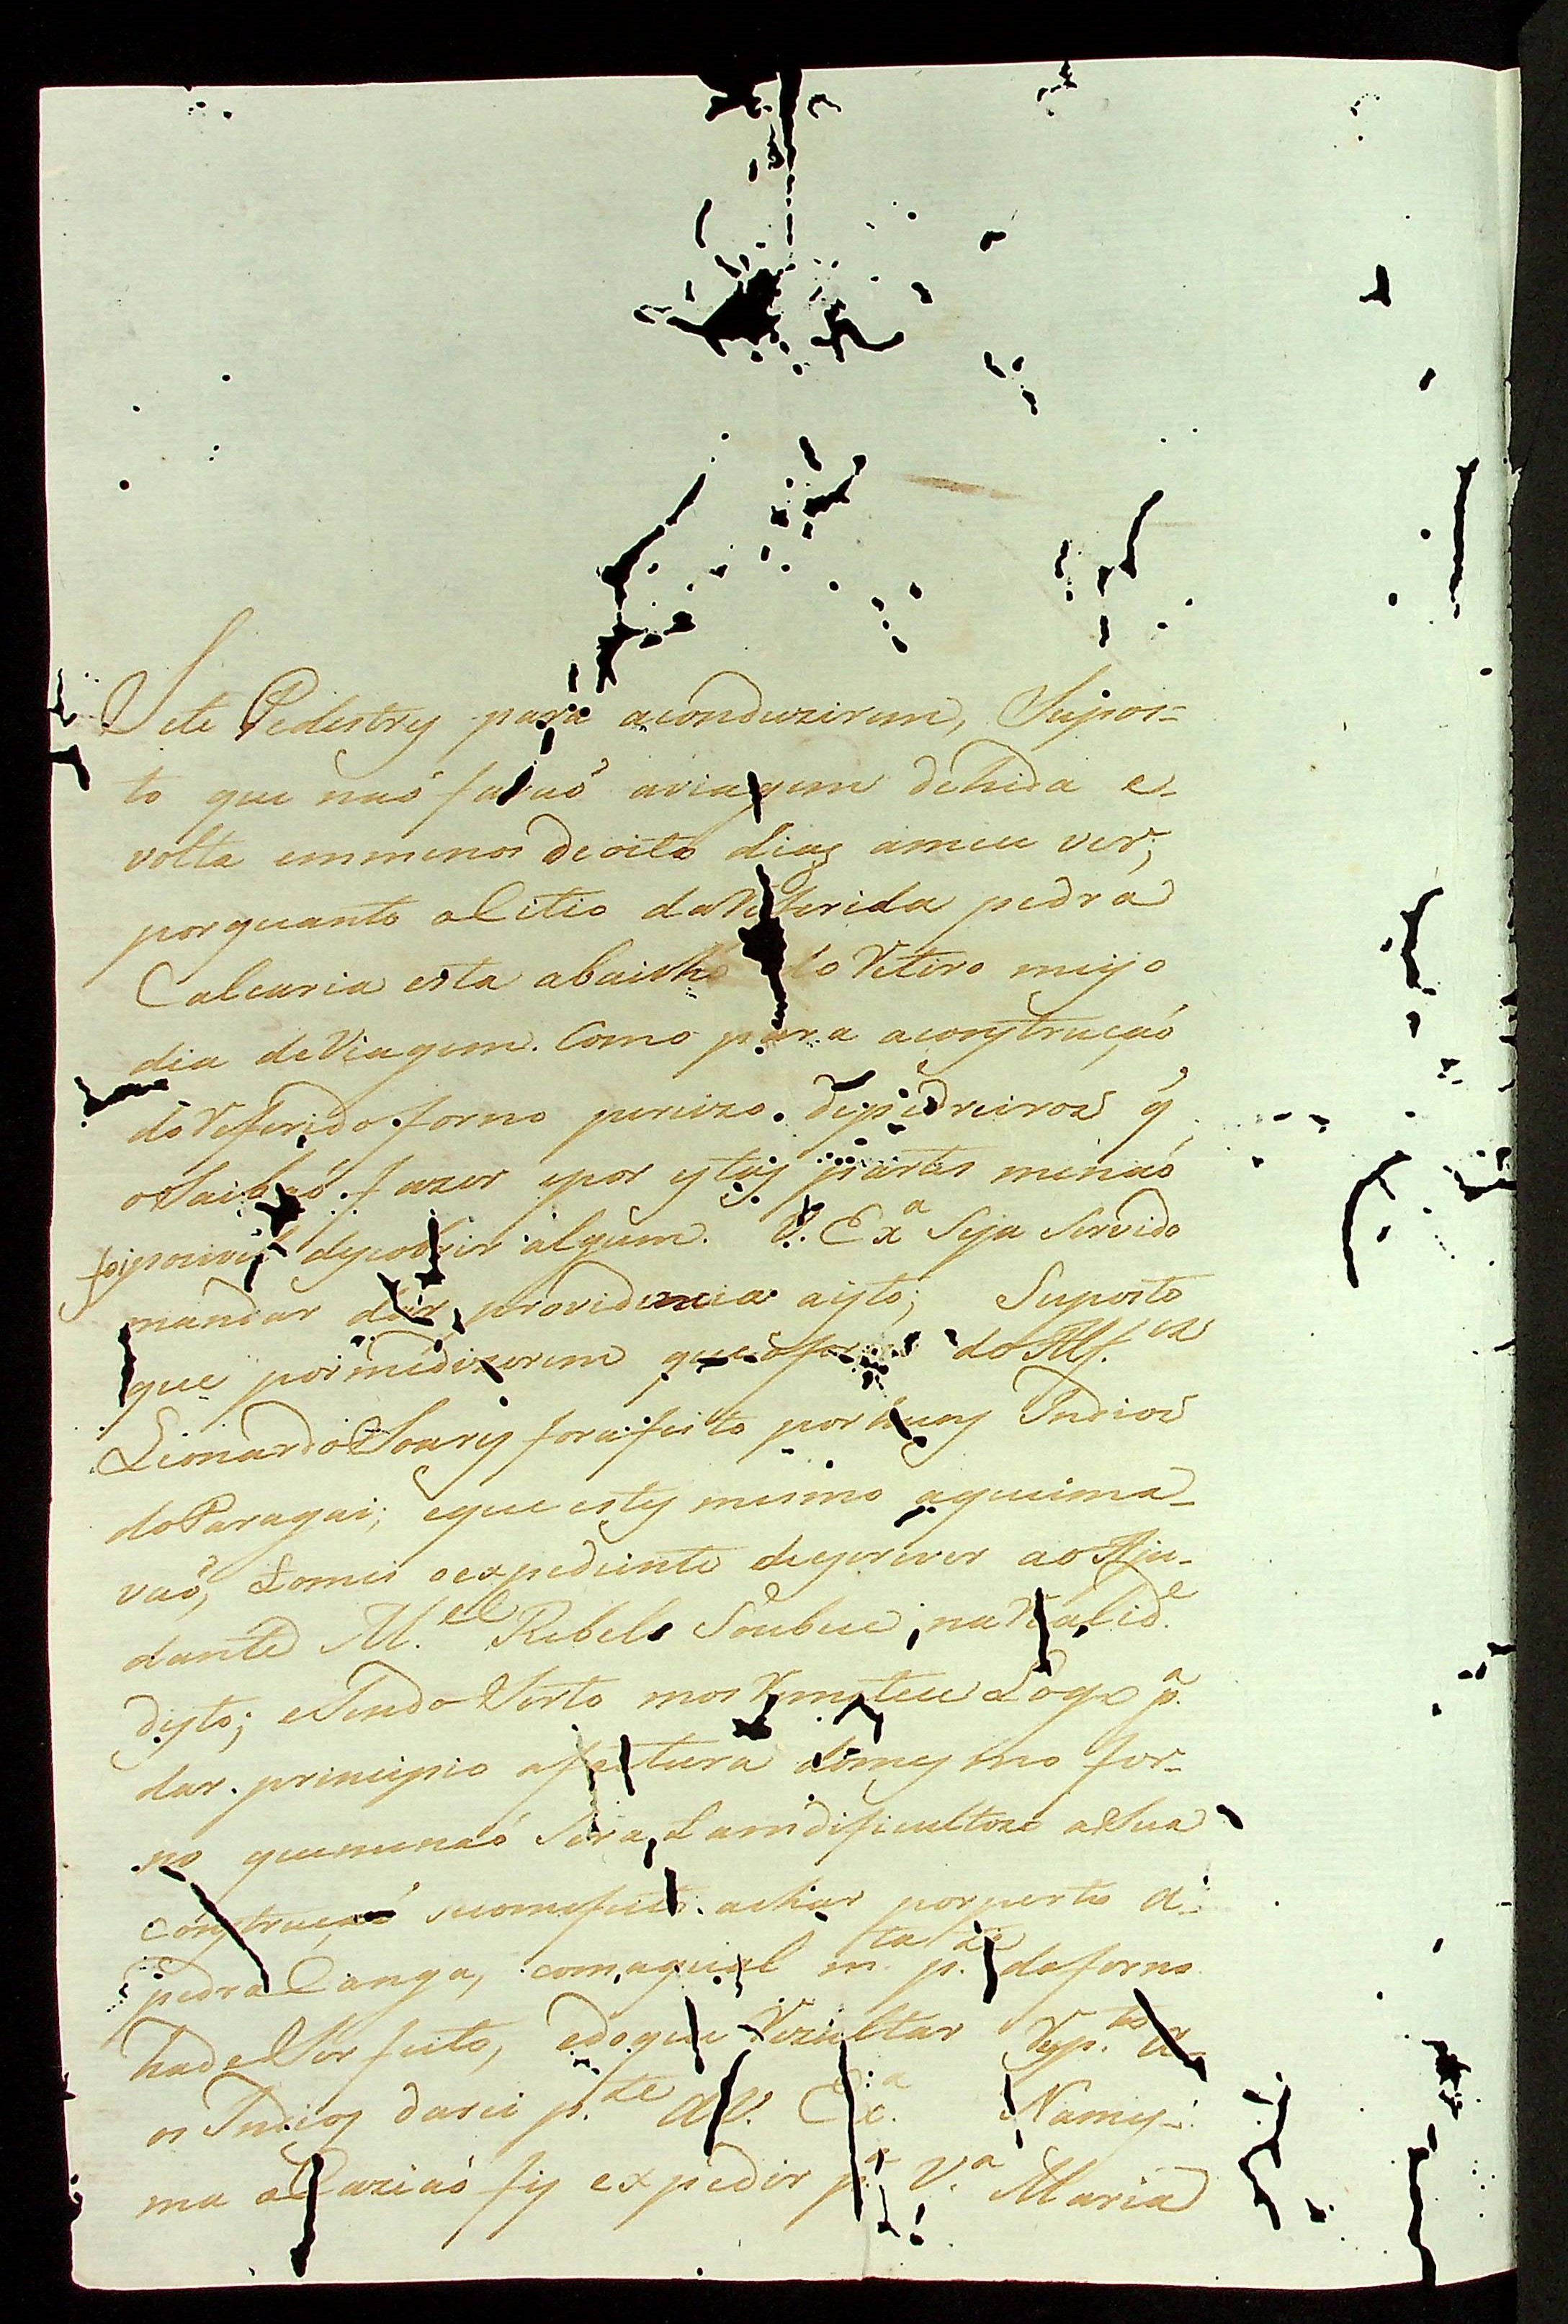 Sete Pedestres para aconduzirem, Supos=
to que naõ faraõ aviagem dehida e-
volta emmenos deoito dias ameu ver,
porquanto oCitio daReferida pedra
Calcaria esta abaicho do Retiro meyo
dia deViagem. Como para aconstruçaõ
doReferido forno percizo depedreiros q̃
oSaibaõ fazer epor estas partes menaõ
foiposivel descobrir algum. V. Exª Seja Servido
mandar dar providencia aisto; Suposto
que pormedizerem que o forno do Alf.es
Lionardo Soares forafeito por huns Indios
do Paragai; eque estes mesmo aqueima-
vaõ, tomei oexpediente deescrever ao Aju-
dante M.el Rebelo Soubece, na Realid.e
disto; eSendo Serto mos Remeteu Logo p.ª
dar principio afeitura domesmo for-
no quemenaõ Sera tam dificultoza aSua
construçaõ secomefeito achar porperto a
pedra Canga, comaqual m.ta p.te doforno
hadeSer feito, edoque Rezultar Resp.to a
os Indios darei p.te AV. Exª. Names-
ma oCaziaõ fis expedir p.ª V.ª Maria